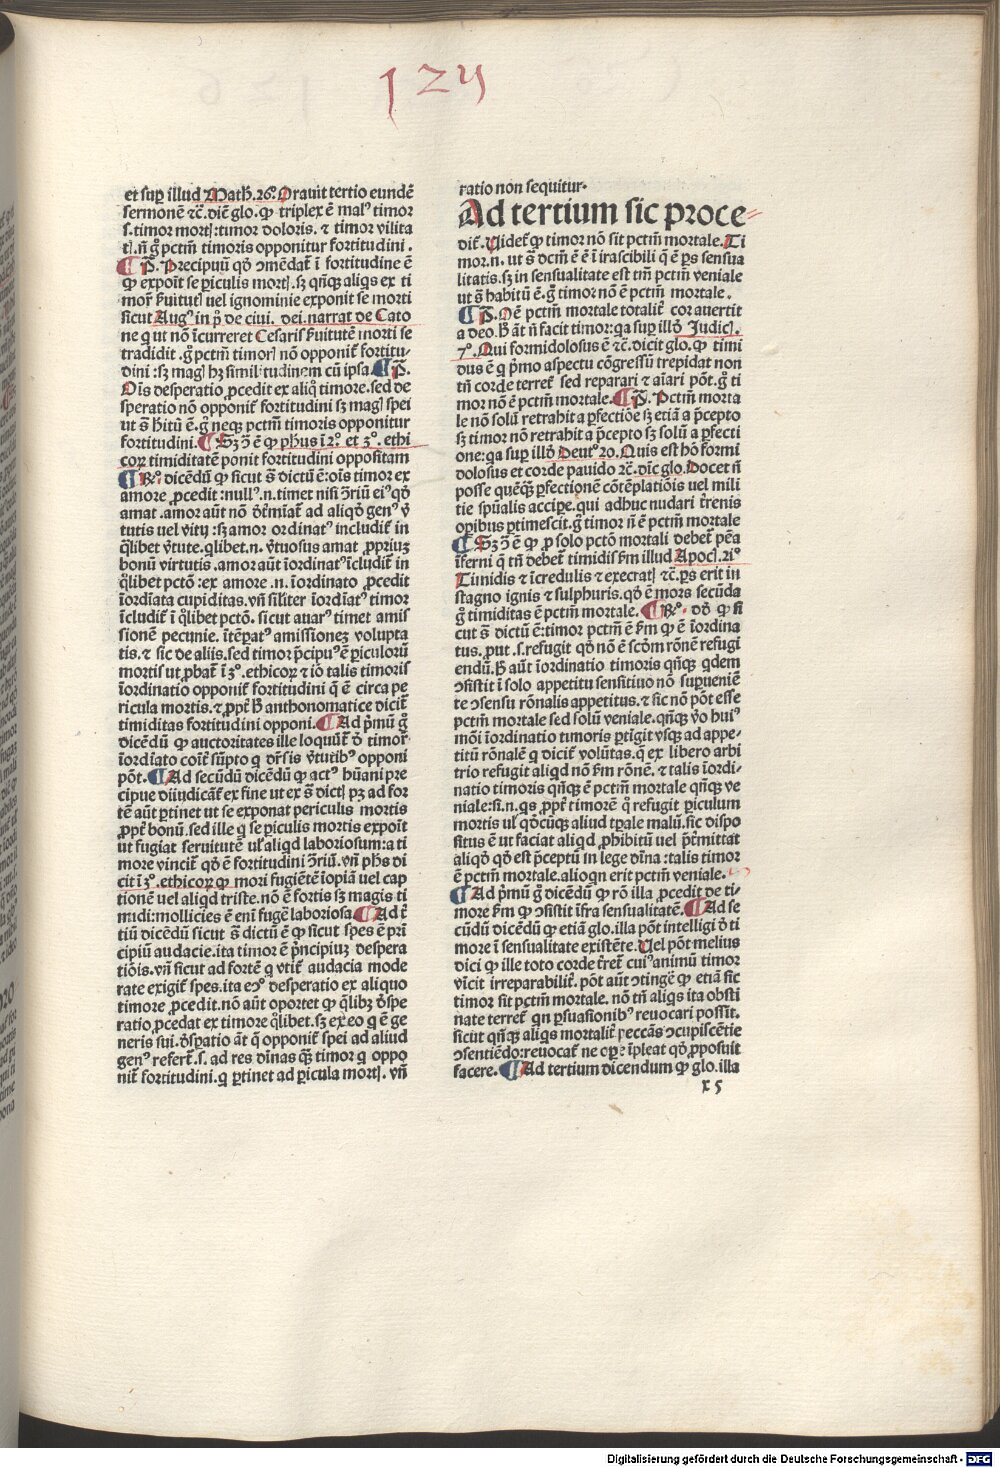 125
et suꝑ illud Math̄. 26. Orauit tertio eundē
sermonē ⁊c̄. diēn̄ glo. ꝙ triplex ē malꝰ timor
s. timor mortꝭ: timor doloris. ⁊ timor vilita
tꝭ. n̄ gͦ pctm̄ timoris opponitur fortitudini.
¶ P̄. Precipuū qd̓ ↄmēdat̄ ī fortitudine ē
ꝙ expoīt se ꝑiculis mortꝭ. sꝫ qn̄qꝫ aliqs ex ti
mor̄ ẜuitutꝭ uel ignominie exponit se morti
sicut Augꝰ in pͥ de ciui. dei. narrat de Cato
ne q ut nō īcurreret Cesaris ẜuitutē morti se
tradidit. gͦ pctm̄ timorꝭ nō opponit̄ fortitu-
dini: sꝫ magꝭ hꝫ similitudinem cū ipsa. ¶ P̄.
Oīs desperatio ꝓcedit ex aliq̄ timore. sed de
speratio nō opponit̄ fortitudini sꝫ magꝭ spei
ut s̄ hītū ē. gͦ neqꝫ pctm̄ timoris opponitur
fortitudini. ¶ Sꝫ ↄ̄ ē ꝙ phūs ī 2ͦ. et 3ͦ. ethi
coꝝ timiditatē ponit fortitudini oppositam
¶ Rͦ. dicēdū ꝙ sicut s̄ dictū ē: oīs timor ex
amore ꝓcedit: nullꝰ. n. timet nisi ↄ̄riū eiꝰ qd̓
amat. amor aūt nō dēt̄miat̄ ad aliqd̓ genꝰ v̓
tutis uel vitij: sꝫ amor ordinatꝰ includit̄ in
q̄libet v̓tute. q̄libet. n. v̓tuosus amat ꝓpriuꝫ
bonū virtutis. amor aūt īordinatꝰ īcludit̄ in
q̄libet pctō: ex amore. n. īordinato ꝓcedit
īordīata cupiditas. vn̄ sīliter īordīatꝰ timor
īcludit̄ ī q̄libet pctō. sicut auarꝰ timet amis
sionē pecunie. ītēꝑatꝰ amissionez volupta
tis. ⁊ sic de aliis. sed timor p̄cipuꝰ ē ꝑiculorū
mortis ut ꝓbat̄ ī 3ͦ. ethicoꝝ ⁊ iō talis timoris
īordinatio opponit̄ fortitudini q̄ ē circa pe
ricula mortis. ⁊ ꝓpt̄ h̄ anthonomatice dicit̄
timiditas fortitudini opponi. ¶ Ad pͥmū gͦ
dicēdū ꝙ auctoritates ille loquūt̄ d̓ timor̄
īordīato coīt̄ sūpto q dr̄sis v̓tutibꝰ opponi
pōt. ¶ Ad secūdū dicēdū ꝙ actꝰ hūani pre
cipue diiudicāt̄ ex fine ut ex s̄ dictꝭ pꝫ ad for
tē aūt ꝑtinet ut se exponat periculis mortis
ꝓpt̄ bonū. sed ille q se ꝑiculis mortis expoīt
ut fugiat seruitutē uł aliqd laboriosum: a ti
more vincit̄ qd̓ ē fortitudini ↄ̄riū. vn̄ phs̄ di
cit ī 3ͦ. ethicoꝝ ꝙ mori fugiētē īopiā uel cap
tionē uel aliqd triste. nō ē fortis sꝫ magis ti
midi: mollicies ē eni fugē laboriosa ¶ Ad t̄
tiū dicēdū sicut s̄ dictū ē ꝙ sicut spes ē pri
cipiū audacie. ita timor ē pͥncipiuꝫ despera
tiōis. vn̄ sicut ad fortē q vtit̄ audacia mode
rate exigit̄ spes. ita eↄͦ desperatio ex aliquo
timore ꝓcedit. nō aūt oportet ꝙ q̄libꝫ d̓spe
ratio ꝓcedat ex timore q̄libet. sꝫ ex eo q ē ge
neris sui. d̓sꝑatio āt q̄ opponit̄ spei ad aliud
genꝰ refert̄. s. ad res dīnas qꝫ̄ timor q oppo
nit̄ fortitudini. q ꝑtinet ad ꝑicula mortꝭ. vn̄
ratio non sequitur.
Ad tertium sic proce-
dit̄. Uidet̄ ꝙ timor nō sit pctm̄ mortale. Ti
mor. n. ut s̄ dcm̄ ē ē ī irascibili q̄ ē ꝑs sensua
litatis. sꝫ in sensualitate est tm̄ pctm̄ veniale
ut s̄ habitū ē. gͦ timor nō ē pctm̄ mortale.
¶ P̄. Oē pctm̄ mortale totalit̄ cor auertit
a deo. h̄ āt n̄ facit timor: qa suꝑ illd̓ Judicꝭ.
7ͦ. Qui formidolosus ē ⁊c̄. dicit glo. ꝙ timi
dus ē q pͥmo aspectu cōgressū trepidat non
tn̄ corde terret̄ sed reparari ⁊ aīari pōt. gͦ ti
mor nō ē pctm̄ mortale. ¶ P̄. Pctm̄ morta
le nō solū retrahit a ꝑfectiōe sꝫ etiā a p̄cepto
sꝫ timor nō retrahit a p̄cepto sꝫ solū a ꝑfecti
one: qa suꝑ illd̓ Deutꝰ 20. Quis est hō formi
dolosus et corde pauido ⁊c̄. dīc glo. Docet n̄
posse quēqꝫ̄ ꝑfectionē cōtēplatiōis uel mili
tie spūalis accipe. qui adhuc nudari t̄renis
opibus ꝑtimescit. gͦ timor n̄ ē pctm̄ mortale
¶ Sꝫ ↄ̄ ē ꝙ ꝓ solo pctō mortali debet̄ pēa
īferni q̄ tn̄ debet̄ timidis ẜm illud Apocꝭ. 21ͦ
Timidis ⁊ īcredulis ⁊ execratꝭ ⁊c̄. ꝑs erit in
stagno ignis ⁊ sulphuris. qd̓ ē mors secūda
gͦ timiditas ē pctm̄ mortale. ¶ Rͦ. dd̓ ꝙ si
cut s̄ dictū ē: timor pctm̄ ē ẜm ꝙ ē īordina
tus. ꝓut. s. refugit qd̓ nō ē scd̓m rōnē refugi
endū. h̄ aūt īordinatio timoris qn̄qꝫ qdem
ↄsistit ī solo appetitu sensitiuo nō suꝑueniē
te ↄsensu rōnalis appetitus. ⁊ sic nō pōt esse
pctm̄ mortale sed solū veniale. qn̄qꝫ v̓o huiꝰ
mōi īordinatio timoris ꝑtīgit vsqꝫ ad appe-
titū rōnalē q dicit̄ volūtas. q̄ ex libero arbi
trio refugit aliqd nō ẜm rōnē. ⁊ talis īordi-
natio timoris qn̄qꝫ ē pctm̄ mortale qn̄qꝫ ve
niale: si. n. qs ꝓpt̄ timorē q̄ refugit ꝑiculum
mortis uł qd̓cūqꝫ aliud tꝑale malū. sic dispo
situs ē ut faciat aliqd ꝓhibitū uel p̄t̄mittat
aliqd̓ qd̓ est p̄ceptū in lege dīna: talis timor
ē pctm̄ mortale. alioqn erit pctm̄ veniale.
¶ Ad pͥmū gͦ dicēdū ꝙ rō illa ꝓcedit de ti-
more ẜm ꝙ ↄsistit īfra sensualitatē. ¶ Ad se
cūdū dicēdū ꝙ etiā glo. illa pōt intelligi d̓ ti
more ī sensualitate existēte. Uel pōt melius
dici ꝙ ille toto corde t̄ret̄ cuiꝰ animū timor
vīcit irreparabilit̄. pōt aūt ↄtingē ꝙ etiā sic
timor sit pctm̄ mortale. nō tn̄ aliqs ita obsti
nate terret̄ qn ꝑsuasionibꝰ reuocari possit.
sicut qn̄qꝫ aliqs mortalit̄ peccās ↄcupiscētie
ↄsentiēdo: reuocat̄ ne ope īpleat qd̓ ꝓposuit
facere. ¶ Ad tertium dicendum ꝙ glo. illa
x 5
Digitalisierung gefördert durch die Deutsche Forschungsgemeinschaft - DFG